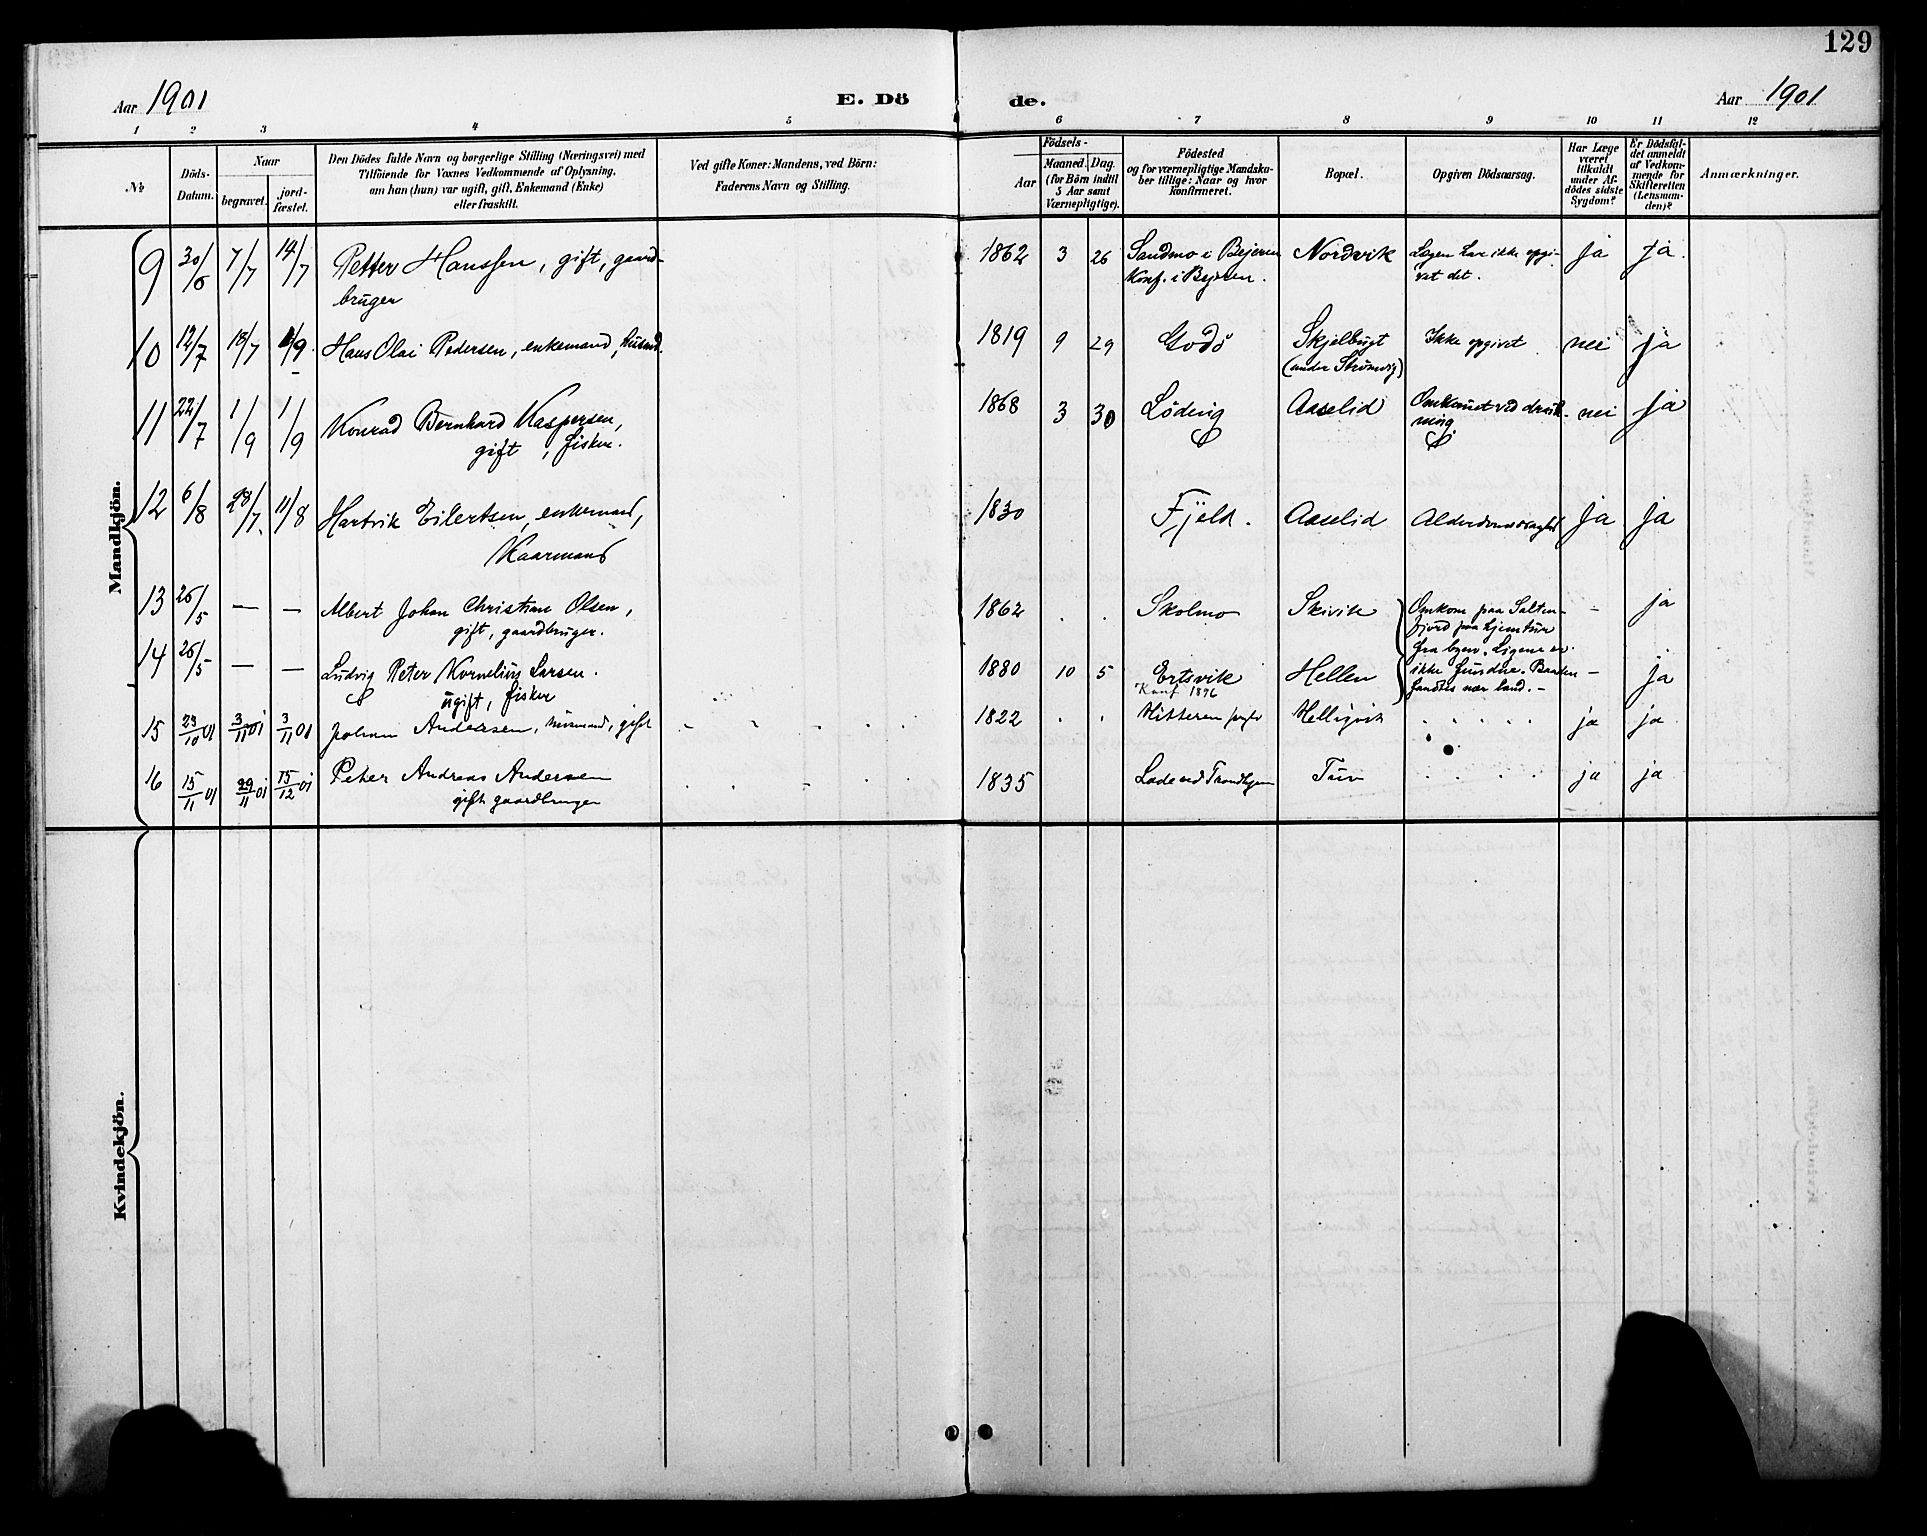 129
Aar 1901
E. Dö
de.
Aar 1901
1 2 3 4 5 6 7 8 9 10 11 12
№
Döds-
Datum.
Naar
begravet.
jord-
fæstet.
Den Dödes fulde Navn og borgerlige Stilling (Næringsvei) med
Tilföiende for Voxnes Vedkommende af Oplysning,
om han (hun) var ugift, gift, Enkemand (Enke)
eller fraskilt.
Ved gifte Koner: Mandens, ved Börn:
Faderens Navn og Stilling.
Födsels-
Aar
Maaned. Dag.
(for Börn indtil
5 Aar samt
Værnepligtige).
Födested
og for værnepligtige Mandska-
ber tillige: Naar og hvor
konfirmeret.
Bopæl.
Opgiven Dödsaarsag.
Har Læge
været
tilkaldt
under Af-
dödes sidste
Sygdom?
Er Dödsfal-
det anmeldt
af Vedkom-
mende for
Skifteretten
(Lensman-
den)?
Anmærkninger.
Mandkjön.
9 30/6 7/7 14/7 Petter Hanssen, gift, gaard- 1862 3 26 Sandmo i Bejeren Nordvik Lægen har ikke opgi- ja ja.
bruger Konf. i Bejeren. vet det.
10 12/7 18/7 1/9. Hans Olai Pedersen, enkemand, husmd. 1819 9 29 Godö Skjelbugt Ikke opgivet nei ja
(under Strömvig)
11 22/7 1/9 1/9 Konrad Bernhard Kaspersen, 1868 3 30 Löding Aaselid Omkomet ved drukk- nei ja
gift, fisker. ning.
12 6/8 28/7. 11/8 Hartvik Eilertsen, enkemand, 1830 Fjeld. Aaselid Alderdomssvaghed ja ja
Kaarmand
13 26/5 — — Albert Johan Christian Olsen, 1862 . . Skolmo Skivik Omkom paa Salten- – ja
gift, gaardbruger. fjord paa hjemtur
14 26/5 — — Ludvig Peter Kornelius Larsen. 1880 10 5 Ertsvik Hellen fra byen. Ligene er
ikke fundne. Baaden – ja
ugift, fisker Konf 1896 fandtes nær land. –
15 29/10 01 3/11 01 3/11 01 Johan Andersen, husmand, gift 1822 . . Hitteren Helligvik ja ja
16 15/11 01 29/11 01 15/12 01 Peter Andreas Andersen 1835 Lade ved Trondhjem Tuv ja ja
gift gaardbruger
Kvindekjön.